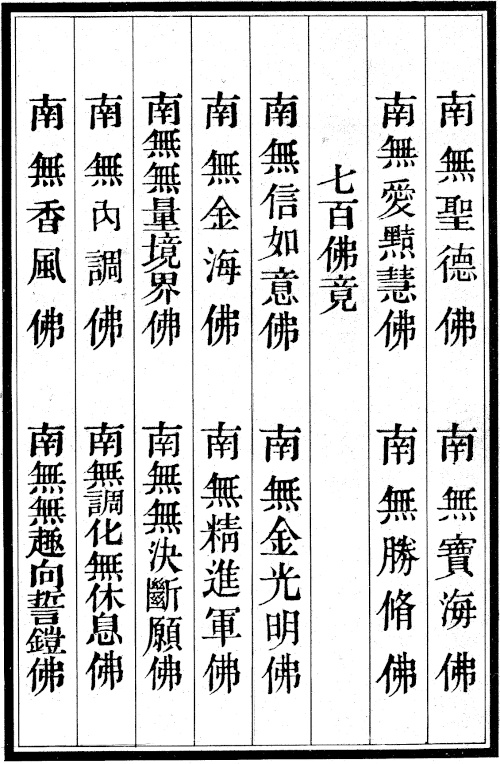 南無聖德佛　南無寶海佛
南無愛黠慧佛　南無勝脩佛
七百佛竟
南無信如意佛　南無金光明佛
南無金海佛　南無精進軍佛
南無無量境界佛　南無無決斷願佛
南無內調佛　南無調化無休息佛
南無香風佛　南無無趣向誓鎧佛